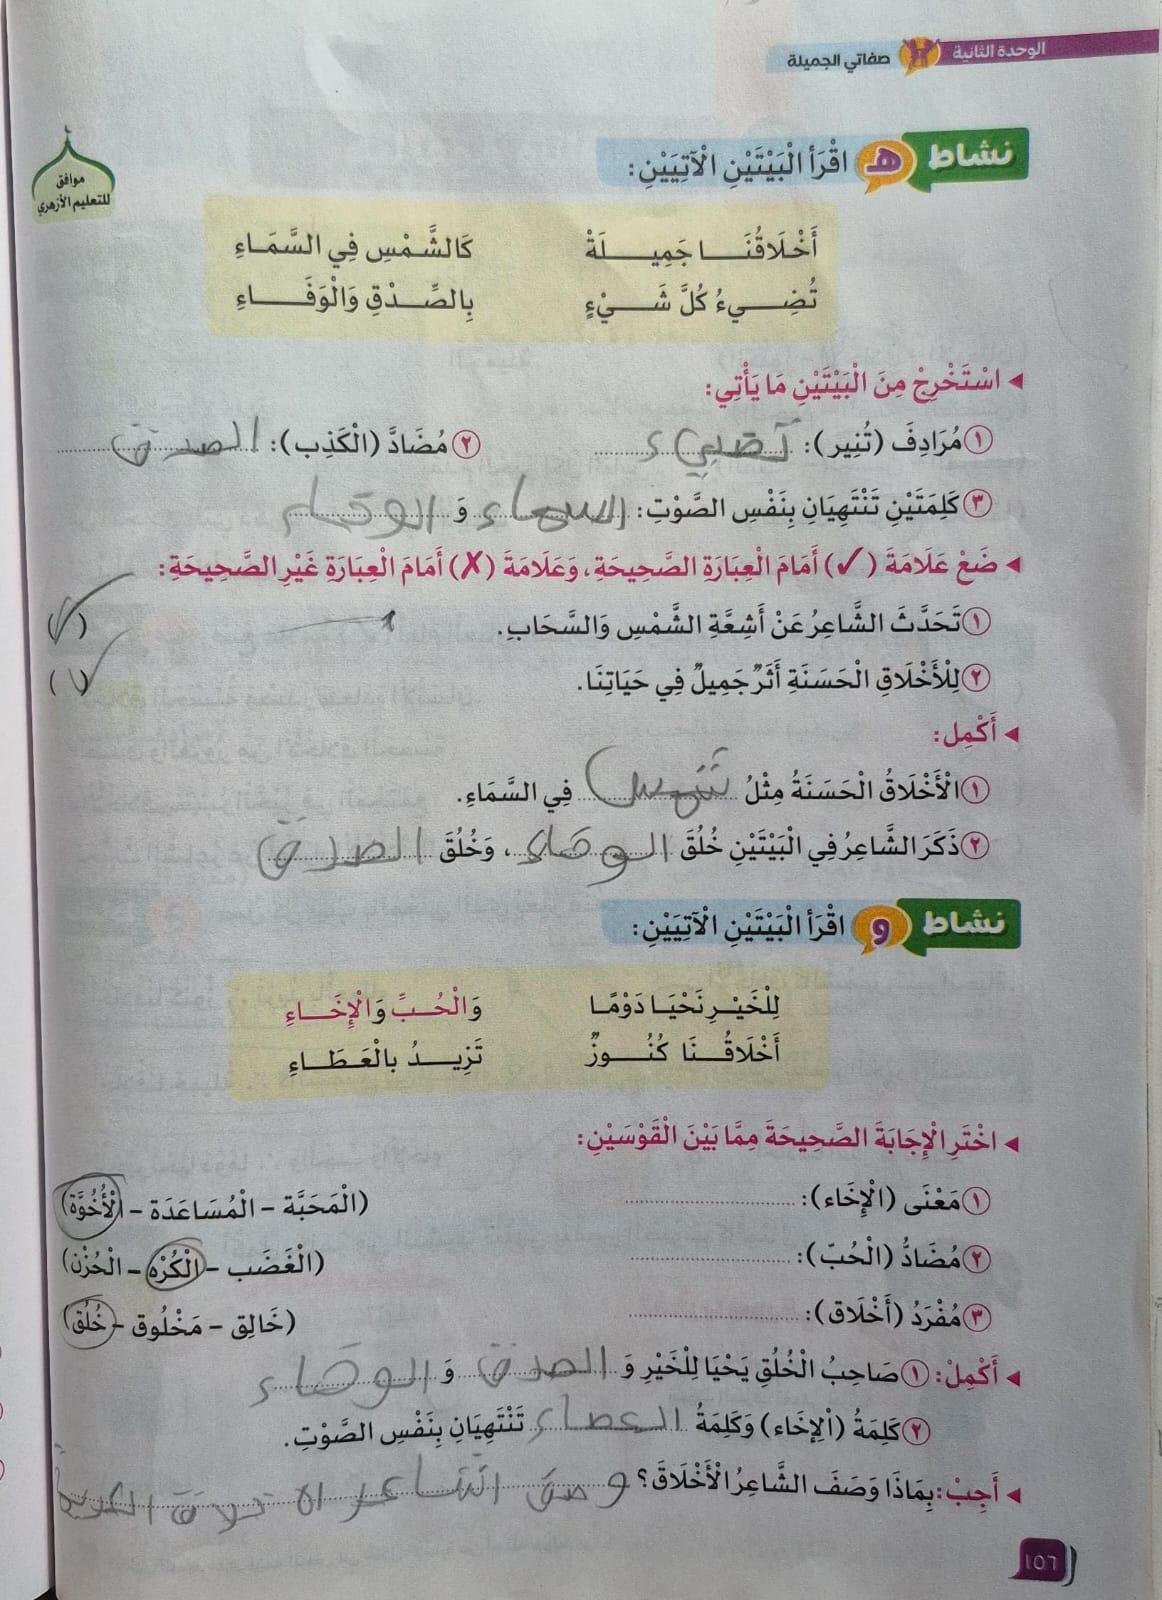 الوحدة الثانية صفاتي الجميلة
موافق
للتعليم الأزهري
نشاط هـ اقْرَأ الْبَيْتَيْنِ الْآتِيَيْنِ:
أَخْلَاقُنَا جَمِيلَةْ كَالشَّمْسِ فِي السَّمَاءِ
تُضِيءُ كُلَّ شَيْءٍ بِالصِّدْقِ وَالْوَفَاءِ
◂ اسْتَخْرِجْ مِنَ الْبَيْتَيْنِ مَا يَأْتِي:
١ مُرَادِفَ (تُنِير): تضيء ٢ مُضَادَّ (الْكَذِب): الصدق
٣ كَلِمَتَيْنِ تَنْتَهِيَانِ بِنَفْسِ الصَّوْتِ: السماء وَ الوفاء
◂ ضَعْ عَلَامَةَ (✓) أَمَامَ الْعِبَارَةِ الصَّحِيحَةِ، وَعَلَامَةَ (✗) أَمَامَ الْعِبَارَةِ غَيْرِ الصَّحِيحَةِ:
١ تَحَدَّثَ الشَّاعِرُ عَنْ أَشِعَّةِ الشَّمْسِ وَالسَّحَابِ. (✓)
٢ لِلْأَخْلَاقِ الْحَسَنَةِ أَثَرٌ جَمِيلٌ فِي حَيَاتِنَا. (✓)
◂ أَكْمِل:
١ الْأَخْلَاقُ الْحَسَنَةُ مِثْلُ شمس فِي السَّمَاءِ.
٢ ذَكَرَ الشَّاعِرُ فِي الْبَيْتَيْنِ خُلُقَ الوفاء، وَخُلُقَ الصدق
نشاط و اقْرَأ الْبَيْتَيْنِ الْآتِيَيْنِ:
لِلْخَيْرِ نَحْيَا دَوْمًا وَالْحُبِّ وَالْإِخَاءِ
أَخْلَاقُنَا كُنُوزٌ تَزِيدُ بالْعَطَاءِ
◂ اخْتَرِ الْإِجَابَةَ الصَّحِيحَةَ مِمَّا بَيْنَ الْقَوْسَيْنِ:
١ مَعْنَى (الْإِخَاء): (الْمَحَبَّة - الْمُسَاعَدَة - الْأُخُوَّة)
٢ مُضَادُّ (الْحُبّ): (الْغَضَب - الْكُرْه - الْحُزْن)
٣ مُفْرَدُ (أَخْلَاق): (خَالِق - مَخْلُوق - خُلُق)
◂ أَكْمِلْ: ١ صَاحِبُ الْخُلُقِ يَحْيَا لِلْخَيْرِ وَ الصدق وَ الوفاء
٢ كَلِمَةُ (اْلإِخَاء) وَكَلِمَةُ العصاء تَنْتَهِيَانِ بِنَفْسِ الصَّوْتِ.
◂ أَجِبْ: بِمَاذَا وَصَفَ الشَّاعِرُ الْأَخْلَاقَ؟ وصف الشاعر
١٥٦